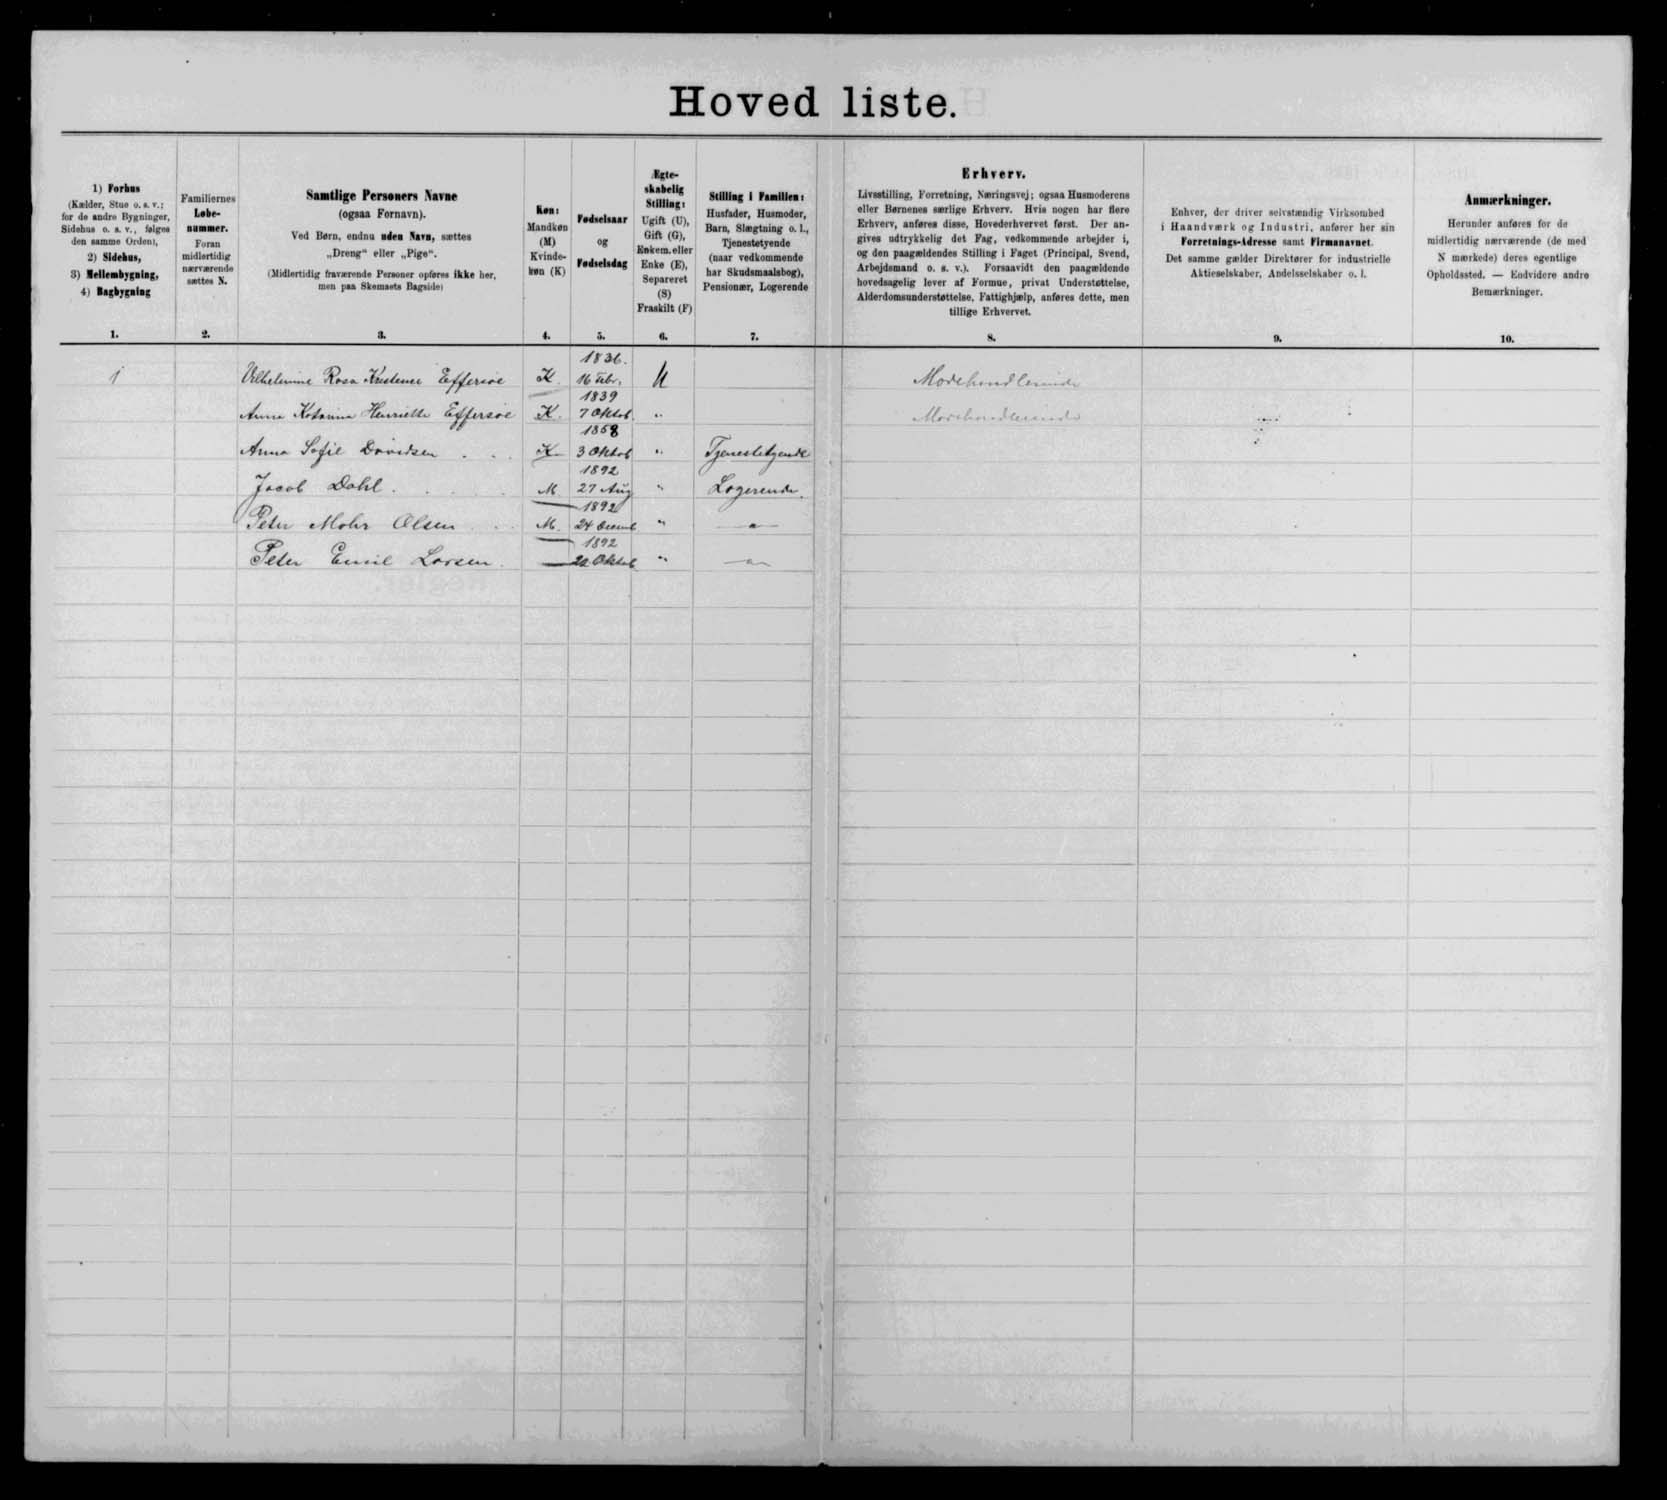 Hoved liste.
1) Forhus
(Kælder, Stue o. s. v.;
for de andre Bygninger,
Sidehus o. s. v., følges
den samme Orden),
2) Sidehus,
3) Mellembygning,
4) Bagbygning
1.
Familiernes
Løbe-
nummer.
Foran
midlertidig
nærværende
sættes N.
2.
Samtlige Personers Navne
(ogsaa Fornavn).
Ved Børn, endnu uden Navn, sættes
„Dreng“ eller „Pige“.
(Midlertidig fraværende Personer opføres ikke her,
men paa Skemaets Bagside)
3.
Køn:
Mandkøn
(M)
Kvinde-
køn (K)
4.
Fødselsaar
og
Fødselsdag
5.
Ægte-
skabelig
Stilling:
Ugift (U),
Gift (G),
Enkem. eller
Enke (E),
Separeret
(S)
Fraskilt (F)
6.
Stilling i Familien:
Husfader, Husmoder,
Barn, Slægtning o. l.,
Tjenestetyende
(naar vedkommende
har Skudsmaalsbog),
Pensionær, Logerende
7.
Erhverv.
Livsstilling, Forretning, Næringsvej; ogsaa Husmoderens
eller Børnenes særlige Erhverv. Hvis nogen har flere
Erhverv, anføres disse, Hovederhvervet først. Der an-
gives udtrykkelig det Fag, vedkommende arbejder i,
og den paagældendes Stilling i Faget (Principal, Svend,
Arbejdsmand o. s. v.). Forsaavidt den paagældende
hovedsagelig lever af Formue, privat Understøttelse,
Alderdomsunderstøttelse, Fattighjælp, anføres dette, men
tillige Erhvervet.
8.
Enhver, der driver selvstændig Virksomhed
i Haandværk og Industri, anfører her sin
Forretnings-Adresse samt Firmanavnet.
Det samme gælder Direktører for industrielle
Aktieselskaber, Andelsselskaber o. l.
9.
Anmærkninger.
Herunder anføres for de
midlertidig nærværende (de med
N mærkede) deres egentlige
Opholdssted. — Endvidere andre
Bemærkninger.
10.
1836.
1 Vilhelmine Rosa Kristense Effersøe K. 16 Febr. U Modehandlerinde
1839
Anna Katrina Henriette Effersøe K. 7 Oktob. " Modehandlerinde
1868
Anna Sofie Davidsen . . . K 3 Oktob " Tjenestetyende
1892
Jacob Dahl . . . . . M. 27 Aug " Logerende.
1892
Peter Mohr Olsen . . . M. 24 Decemb " —"—
1892
Peter Emil Larsen . — 22 Oktob " —"—